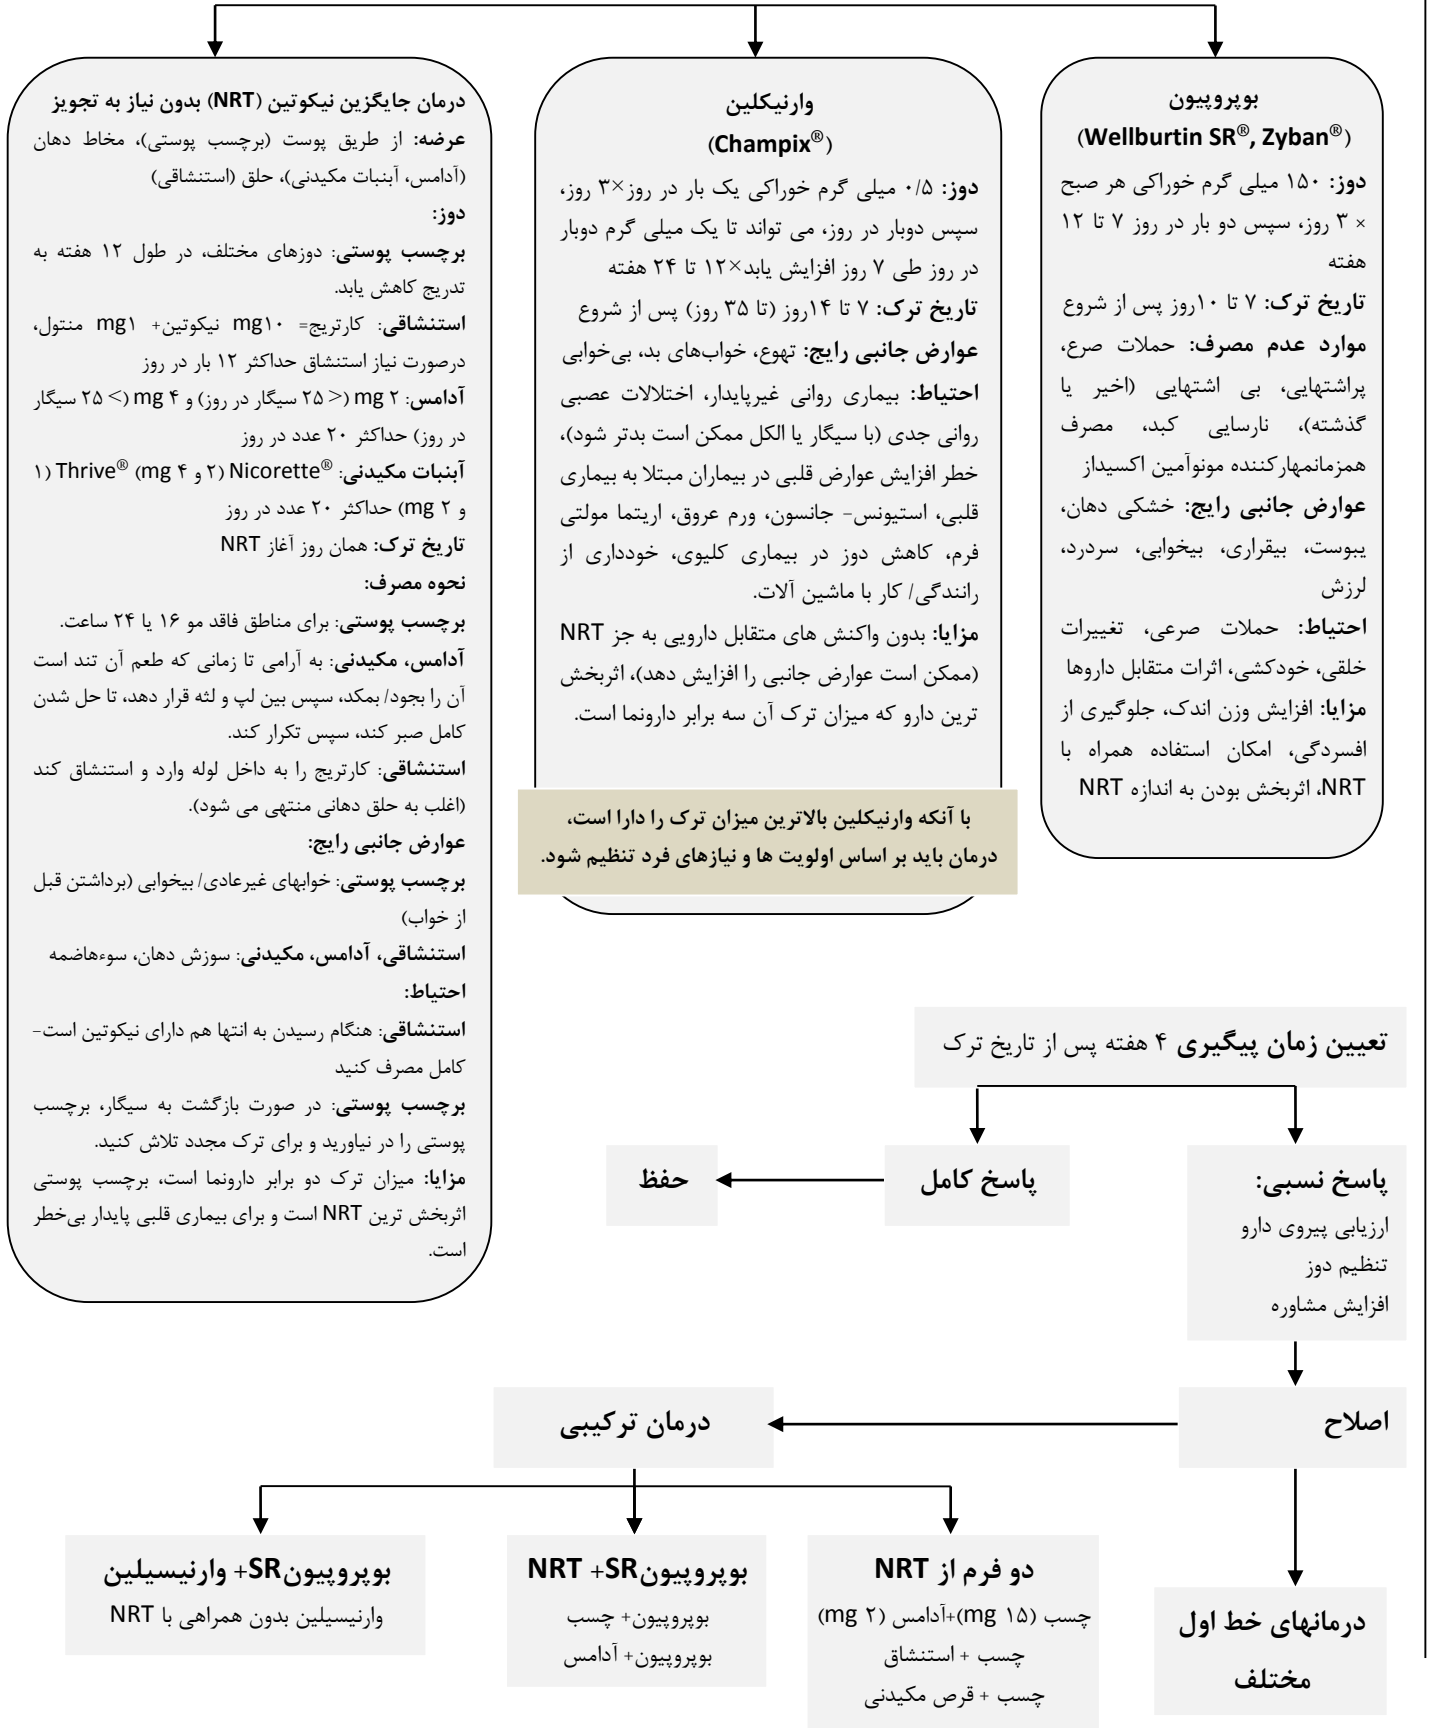 بوپروپیون
(Wellburtin SR®, Zyban®)
دوز: ۱۵۰ میلی گرم خوراکی هر صبح
× ۳ روز، سپس دو بار در روز ۷ تا ۱۲
هفته
تاریخ ترک: ۷ تا ۱۰روز پس از شروع
موارد عدم مصرف: حملات صرع،
پراشتهایی، بی اشتهایی (اخیر یا
گذشته)، نارسایی کبد، مصرف
همزمانمهارکننده مونوآمین اکسیداز
عوارض جانبی رایج: خشکی دهان،
یبوست، بیقراری، بیخوابی، سردرد،
لرزش
احتیاط: حملات صرعی، تغییرات
خلقی، خودکشی، اثرات متقابل داروها
مزایا: افزایش وزن اندک، جلوگیری از
افسردگی، امکان استفاده همراه با
NRT، اثربخش بودن به اندازه NRT
وارنیکلین
(Champix®)
دوز: ۰/۵ میلی گرم خوراکی یک بار در روز×۳ روز،
سپس دوبار در روز، می تواند تا یک میلی گرم دوبار
در روز طی ۷ روز افزایش یابد×۱۲ تا ۲۴ هفته
تاریخ ترک: ۷ تا ۱۴روز (تا ۳۵ روز) پس از شروع
عوارض جانبی رایج: تهوع، خواب‌های بد، بی‌خوابی
احتیاط: بیماری روانی غیرپایدار، اختلالات عصبی
روانی جدی (با سیگار یا الکل ممکن است بدتر شود)،
خطر افزایش عوارض قلبی در بیماران مبتلا به بیماری
قلبی، استیونس- جانسون، ورم عروق، اریتما مولتی
فرم، کاهش دوز در بیماری کلیوی، خودداری از
رانندگی/ کار با ماشین آلات.
مزایا: بدون واکنش های متقابل دارویی به جز NRT
(ممکن است عوارض جانبی را افزایش دهد)، اثربخش
ترین دارو که میزان ترک آن سه برابر دارونما است.
با آنکه وارنیکلین بالاترین میزان ترک را دارا است،
درمان باید بر اساس اولویت ها و نیازهای فرد تنظیم شود.
درمان جایگزین نیکوتین (NRT) بدون نیاز به تجویز
عرضه: از طریق پوست (برچسب پوستی)، مخاط دهان
(آدامس، آبنبات مکیدنی)، حلق (استنشاقی)
دوز:
برچسب پوستی: دوزهای مختلف، در طول ۱۲ هفته به
تدریج کاهش یابد.
استنشاقی: کارتریج= mg۱۰ نیکوتین+ mg۱ منتول،
درصورت نیاز استنشاق حداکثر ۱۲ بار در روز
آدامس: ۲ mg (< ۲۵ سیگار در روز) و ۴ mg (> ۲۵ سیگار
در روز) حداکثر ۲۰ عدد در روز
آبنبات مکیدنی: Nicorette® (۲ و ۴ mg) Thrive® (۱
و ۲ mg) حداکثر ۲۰ عدد در روز
تاریخ ترک: همان روز آغاز NRT
نحوه مصرف:
برچسب پوستی: برای مناطق فاقد مو ۱۶ یا ۲۴ ساعت.
آدامس، مکیدنی: به آرامی تا زمانی که طعم آن تند است
آن را بجود/ بمکد، سپس بین لپ و لثه قرار دهد، تا حل شدن
کامل صبر کند، سپس تکرار کند.
استنشاقی: کارتریج را به داخل لوله وارد و استنشاق کند
(اغلب به حلق دهانی منتهی می شود).
عوارض جانبی رایج:
برچسب پوستی: خوابهای غیرعادی/ بیخوابی (برداشتن قبل
از خواب)
استنشاقی، آدامس، مکیدنی: سوزش دهان، سوءهاضمه
احتیاط:
استنشاقی: هنگام رسیدن به انتها هم دارای نیکوتین است-
کامل مصرف کنید
برچسب پوستی: در صورت بازگشت به سیگار، برچسب
پوستی را در نیاورید و برای ترک مجدد تلاش کنید.
مزایا: میزان ترک دو برابر دارونما است، برچسب پوستی
اثربخش ترین NRT است و برای بیماری قلبی پایدار بی‌خطر
است.
تعیین زمان پیگیری ۴ هفته پس از تاریخ ترک
پاسخ نسبی:
ارزیابی پیروی دارو
تنظیم دوز
افزایش مشاوره
پاسخ کامل
حفظ
اصلاح
درمان ترکیبی
درمانهای خط اول
مختلف
دو فرم از NRT
چسب (۱۵ mg)+آدامس (۲ mg)
چسب + استنشاق
چسب + قرص مکیدنی
بوپروپیونSR+ NRT
بوپروپیون+ چسب
بوپروپیون+ آدامس
بوپروپیونSR+ وارنیسیلین
وارنیسیلین بدون همراهی با NRT